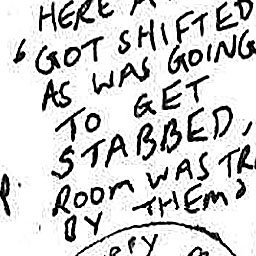 HERE A
' GOT SHIFTED
AS WAS GOING
TO GET
STABBED,
ROOM WAS TR
BY THEM?